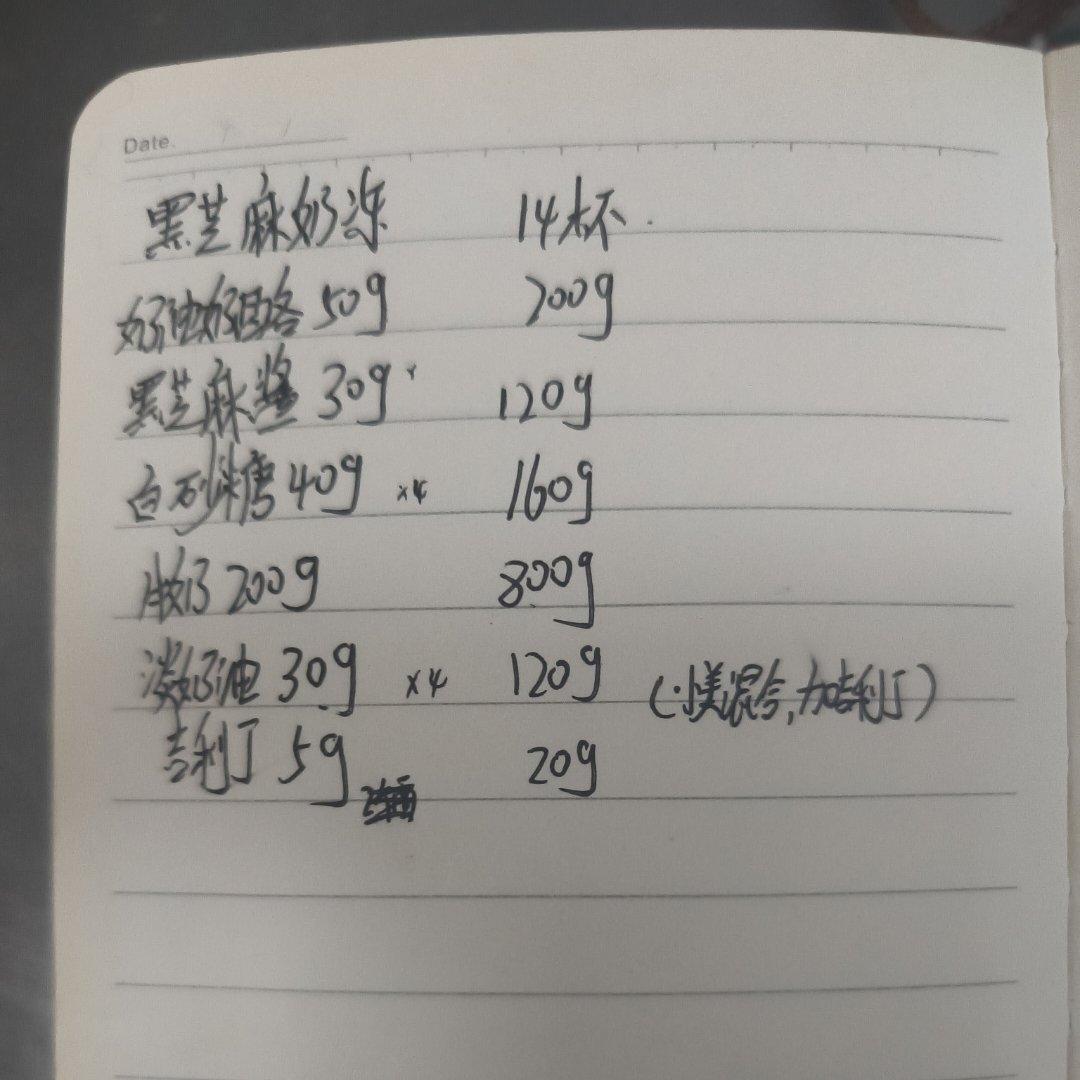 Date.
黑芝麻奶冻 14杯.
奶油奶酪 50g 200g
黑芝麻酱 30g 120g
白砂糖 40g ×4 160g
牛奶 200g 800g
淡奶油 30g ×4 120g (美混合,加吉利丁)
吉利丁 5g 20g